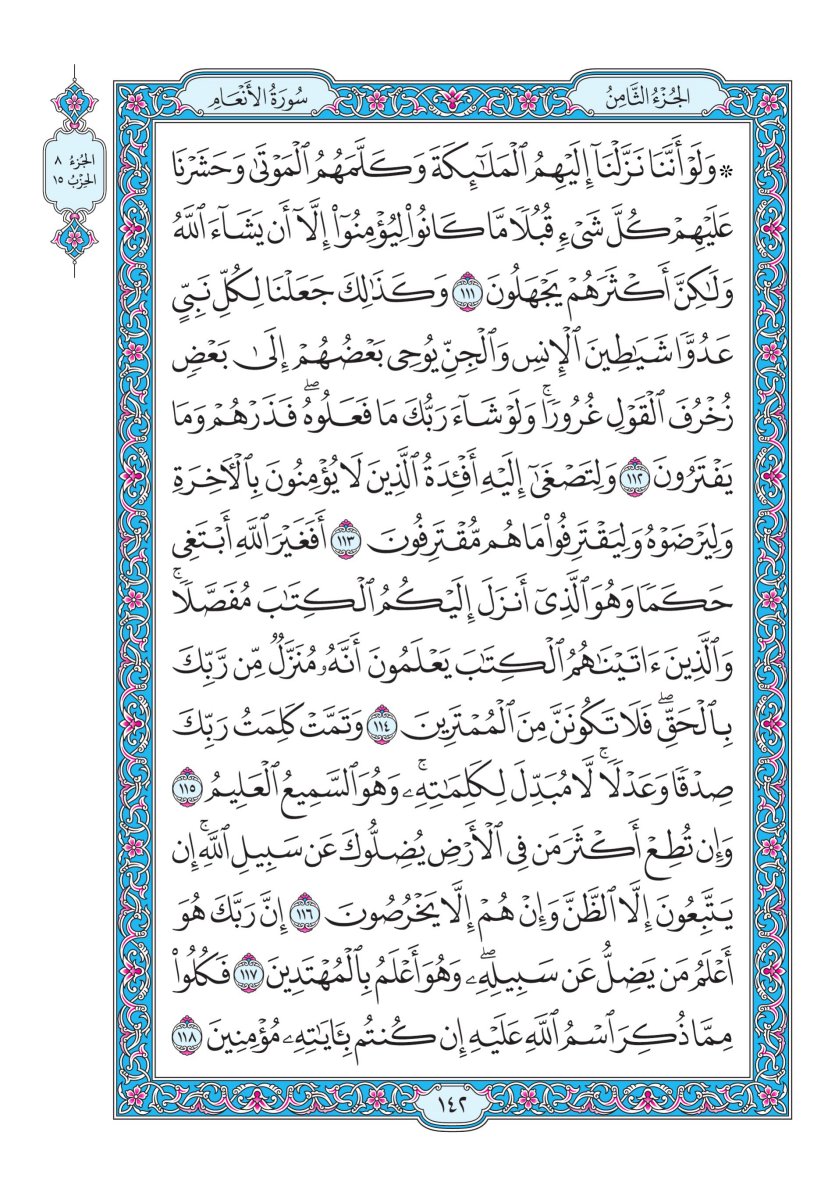 الجُزْءُ الثَّامِنُ
سُورَةُ الأَنْعَامِ
الجُزءُ ٨
الحِزْبُ ١٥
۞ وَلَوْ أَنَّنَا نَزَّلْنَآ إِلَيْهِمُ ٱلْمَلَٰٓئِكَةَ وَكَلَّمَهُمُ ٱلْمَوْتَىٰ وَحَشَرْنَا
عَلَيْهِمْ كُلَّ شَىْءٍ قُبُلًا مَّا كَانُوا۟ لِيُؤْمِنُوٓا۟ إِلَّآ أَن يَشَآءَ ٱللَّهُ
وَلَٰكِنَّ أَكْثَرَهُمْ يَجْهَلُونَ ١١١ وَكَذَٰلِكَ جَعَلْنَا لِكُلِّ نَبِىٍّ
عَدُوًّا شَيَٰطِينَ ٱلْإِنسِ وَٱلْجِنِّ يُوحِى بَعْضُهُمْ إِلَىٰ بَعْضٍ
زُخْرُفَ ٱلْقَوْلِ غُرُورًا ۚ وَلَوْ شَآءَ رَبُّكَ مَا فَعَلُوهُ ۖ فَذَرْهُمْ وَمَا
يَفْتَرُونَ ١١٢ وَلِتَصْغَىٰٓ إِلَيْهِ أَفْـِٔدَةُ ٱلَّذِينَ لَا يُؤْمِنُونَ بِٱلْـَٔاخِرَةِ
وَلِيَرْضَوْهُ وَلِيَقْتَرِفُوا۟ مَا هُم مُّقْتَرِفُونَ ١١٣ أَفَغَيْرَ ٱللَّهِ أَبْتَغِى
حَكَمًا وَهُوَ ٱلَّذِىٓ أَنزَلَ إِلَيْكُمُ ٱلْكِتَٰبَ مُفَصَّلًا ۚ
وَٱلَّذِينَ ءَاتَيْنَٰهُمُ ٱلْكِتَٰبَ يَعْلَمُونَ أَنَّهُۥ مُنَزَّلٌ مِّن رَّبِّكَ
بِٱلْحَقِّ ۖ فَلَا تَكُونَنَّ مِنَ ٱلْمُمْتَرِينَ ١١٤ وَتَمَّتْ كَلِمَتُ رَبِّكَ
صِدْقًا وَعَدْلًا ۚ لَّا مُبَدِّلَ لِكَلِمَٰتِهِۦ ۚ وَهُوَ ٱلسَّمِيعُ ٱلْعَلِيمُ ١١٥
وَإِن تُطِعْ أَكْثَرَ مَن فِى ٱلْأَرْضِ يُضِلُّوكَ عَن سَبِيلِ ٱللَّهِ ۚ إِن
يَتَّبِعُونَ إِلَّا ٱلظَّنَّ وَإِنْ هُمْ إِلَّا يَخْرُصُونَ ١١٦ إِنَّ رَبَّكَ هُوَ
أَعْلَمُ مَن يَضِلُّ عَن سَبِيلِهِۦ ۖ وَهُوَ أَعْلَمُ بِٱلْمُهْتَدِينَ ١١٧ فَكُلُوا۟
مِمَّا ذُكِرَ ٱسْمُ ٱللَّهِ عَلَيْهِ إِن كُنتُم بِـَٔايَٰتِهِۦ مُؤْمِنِينَ ١١٨
١٤٢